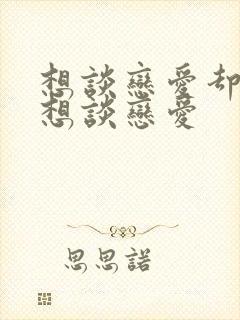 想談戀愛却
想談戀愛
思思諾